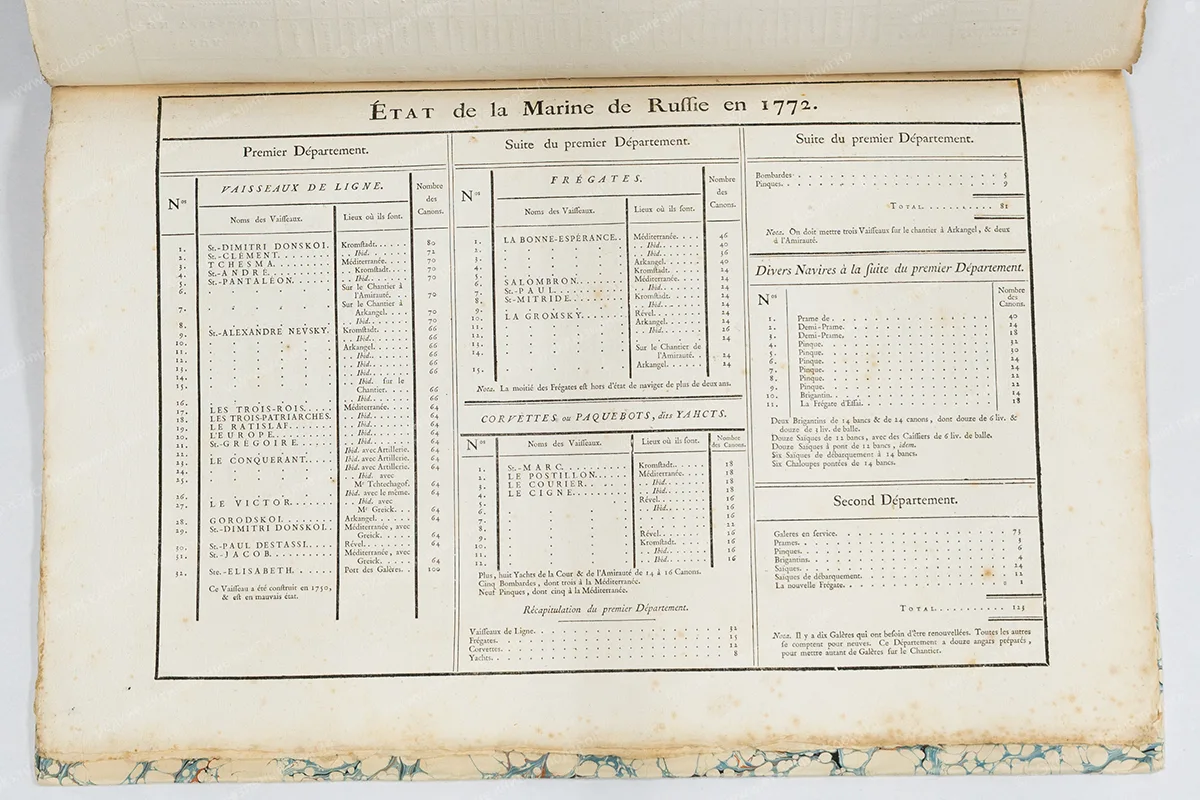 ÉTAT de la Marine de Ruſſie en 1772.
Premier Département.
VAISSEAUX DE LIGNE.
Nos
Noms des Vaiſſeaux.
Lieux où ils ſont.
Nombre des Canons.
1. St.-DIMITRI DONSKOI. Kromſtadt. 80
2. St.-CLÉMENT. Ibid. 72
3. TCHESMA. Méditerranée. 70
4. St.-ANDRÉ. Kromſtadt. 70
5. St.-PANTALÉON. Ibid. 70
6. Sur le Chantier à
l'Amirauté. 70
7. Sur le Chantier à
Arkangel. 70
8. Ibid. 70
9. St.-ALEXANDRE NEVSKY. Kromſtadt. 66
10. Ibid. 66
11. Arkangel. 66
12. Ibid. 66
13. Ibid. 66
14. Ibid. 66
15. Ibid. ſur le
Chantier. 66
16. Ibid. 66
17. LES TROIS-ROIS. Méditerranée. 64
18. LES TROIS-PATRIARCHES. Ibid. 64
19. LE RATISLAF. Ibid. 64
20. L'EUROPE. Ibid. 64
21. St.-GRÉGOIRE. Ibid. 64
22. Ibid. avec Artillerie. 64
23. LE CONQUERANT. Ibid. avec Artillerie. 64
24. Ibid. avec Artillerie. 64
25. Ibid. avec
Mr Tchtechagof. 64
26. Ibid. avec le même. 64
27. LE VICTOR. Ibid. avec
Mr Greick. 64
28. GORODSKOI. Arkangel. 64
29. St.-DIMITRI DONSKOI. Méditerranée, avec
Greick. 64
30. St.-PAUL DESTASSI. Rével. 64
31. St.-JACOB. Méditerranée, avec
Greick. 64
32. Ste.-ELISABETH. Port des Galères. 100
Ce Vaiſſeau a été conſtruit en 1750,
& eſt en mauvais état.
Suite du premier Département.
FRÉGATES.
Nos
Noms des Vaiſſeaux.
Lieux où ils ſont.
Nombre des Canons.
1. LA BONNE-ESPÉRANCE. Méditerranée. 46
2. Ibid. 40
3. Ibid. 36
4. Arkangel. 40
5. Kromſtadt. 24
6. SALOMBRON. Méditerranée. 24
7. St.-PAUL. Ibid. 24
8. St-MITRIDE. Kromſtadt. 24
9. Ibid. 24
10. LA GROMSKY. Rével. 24
11. Arkangel. 24
12. Ibid. 26
13. 24
14. Sur le Chantier de
l'Amirauté. 24
15. Arkangel. 24
Nota. La moitié des Frégates eſt hors d'état de naviger de plus de deux ans.
CORVETTES ou PAQUEBOTS, dits YAHCTS.
Nos
Noms des Vaiſſeaux.
Lieux où ils ſont.
Nombre des Canons.
1. St.-MARC. Kromſtadt. 18
2. LE POSTILLON. Méditerranée. 18
3. LE COURIER. Ibid. 18
4. LE CIGNE. Ibid. 18
5. Rével. 16
6. Ibid. 16
7.
8.
9. Rével. 16
10. Kromſtadt. 16
11. Ibid. 16
12. Ibid. 16
Plus, huit Yachts de la Cour & de l'Amirauté de 14 à 16 Canons.
Cinq Bombardes, dont trois à la Méditerranée.
Neuf Pinques, dont cinq à la Méditerranée.
Récapitulation du premier Département.
Vaiſſeaux de Ligne. 32
Frégates. 15
Corvettes. 12
Yachts. 8
Suite du premier Département.
Bombardes. 5
Pinques. 9
TOTAL. 81
Nota. On doit mettre trois Vaiſſeaux ſur le chantier à Arkangel, & deux
à l'Amirauté.
Divers Navires à la ſuite du premier Département.
Nos
Nombre des Canons.
1. Prame de. 40
2. Demi-Prame. 24
3. Demi-Prame. 18
4. Pinque. 32
5. Pinque. 30
6. Pinque. 24
7. Pinque. 24
8. Pinque. 22
9. Pinque. 22
10. Brigantin. 14
11. La Frégate d'Eſſai. 18
Deux Brigantins de 14 bancs & de 24 canons, dont douze de 6 liv. &
douze de 3 liv. de balle.
Douze Saïques de 12 bancs, avec des Caiſſiers de 6 liv. de balle.
Douze Saïques à pont de 12 bancs, idem.
Six Saïques de débarquement à 14 bancs.
Six Chaloupes pontées de 14 bancs.
Second Département.
Galeres en ſervice. 73
Prames. 5
Pinques. 6
Brigantins. 4
Saïques. 24
Saïques de débarquement. 12
La nouvelle Frégate. 1
TOTAL. 125
Nota. Il y a dix Galères qui ont beſoin d'être renouvellées. Toutes les autres
ſe comptent pour neuves. Ce Département a douze angars préparés,
pour mettre autant de Galères ſur le Chantier.